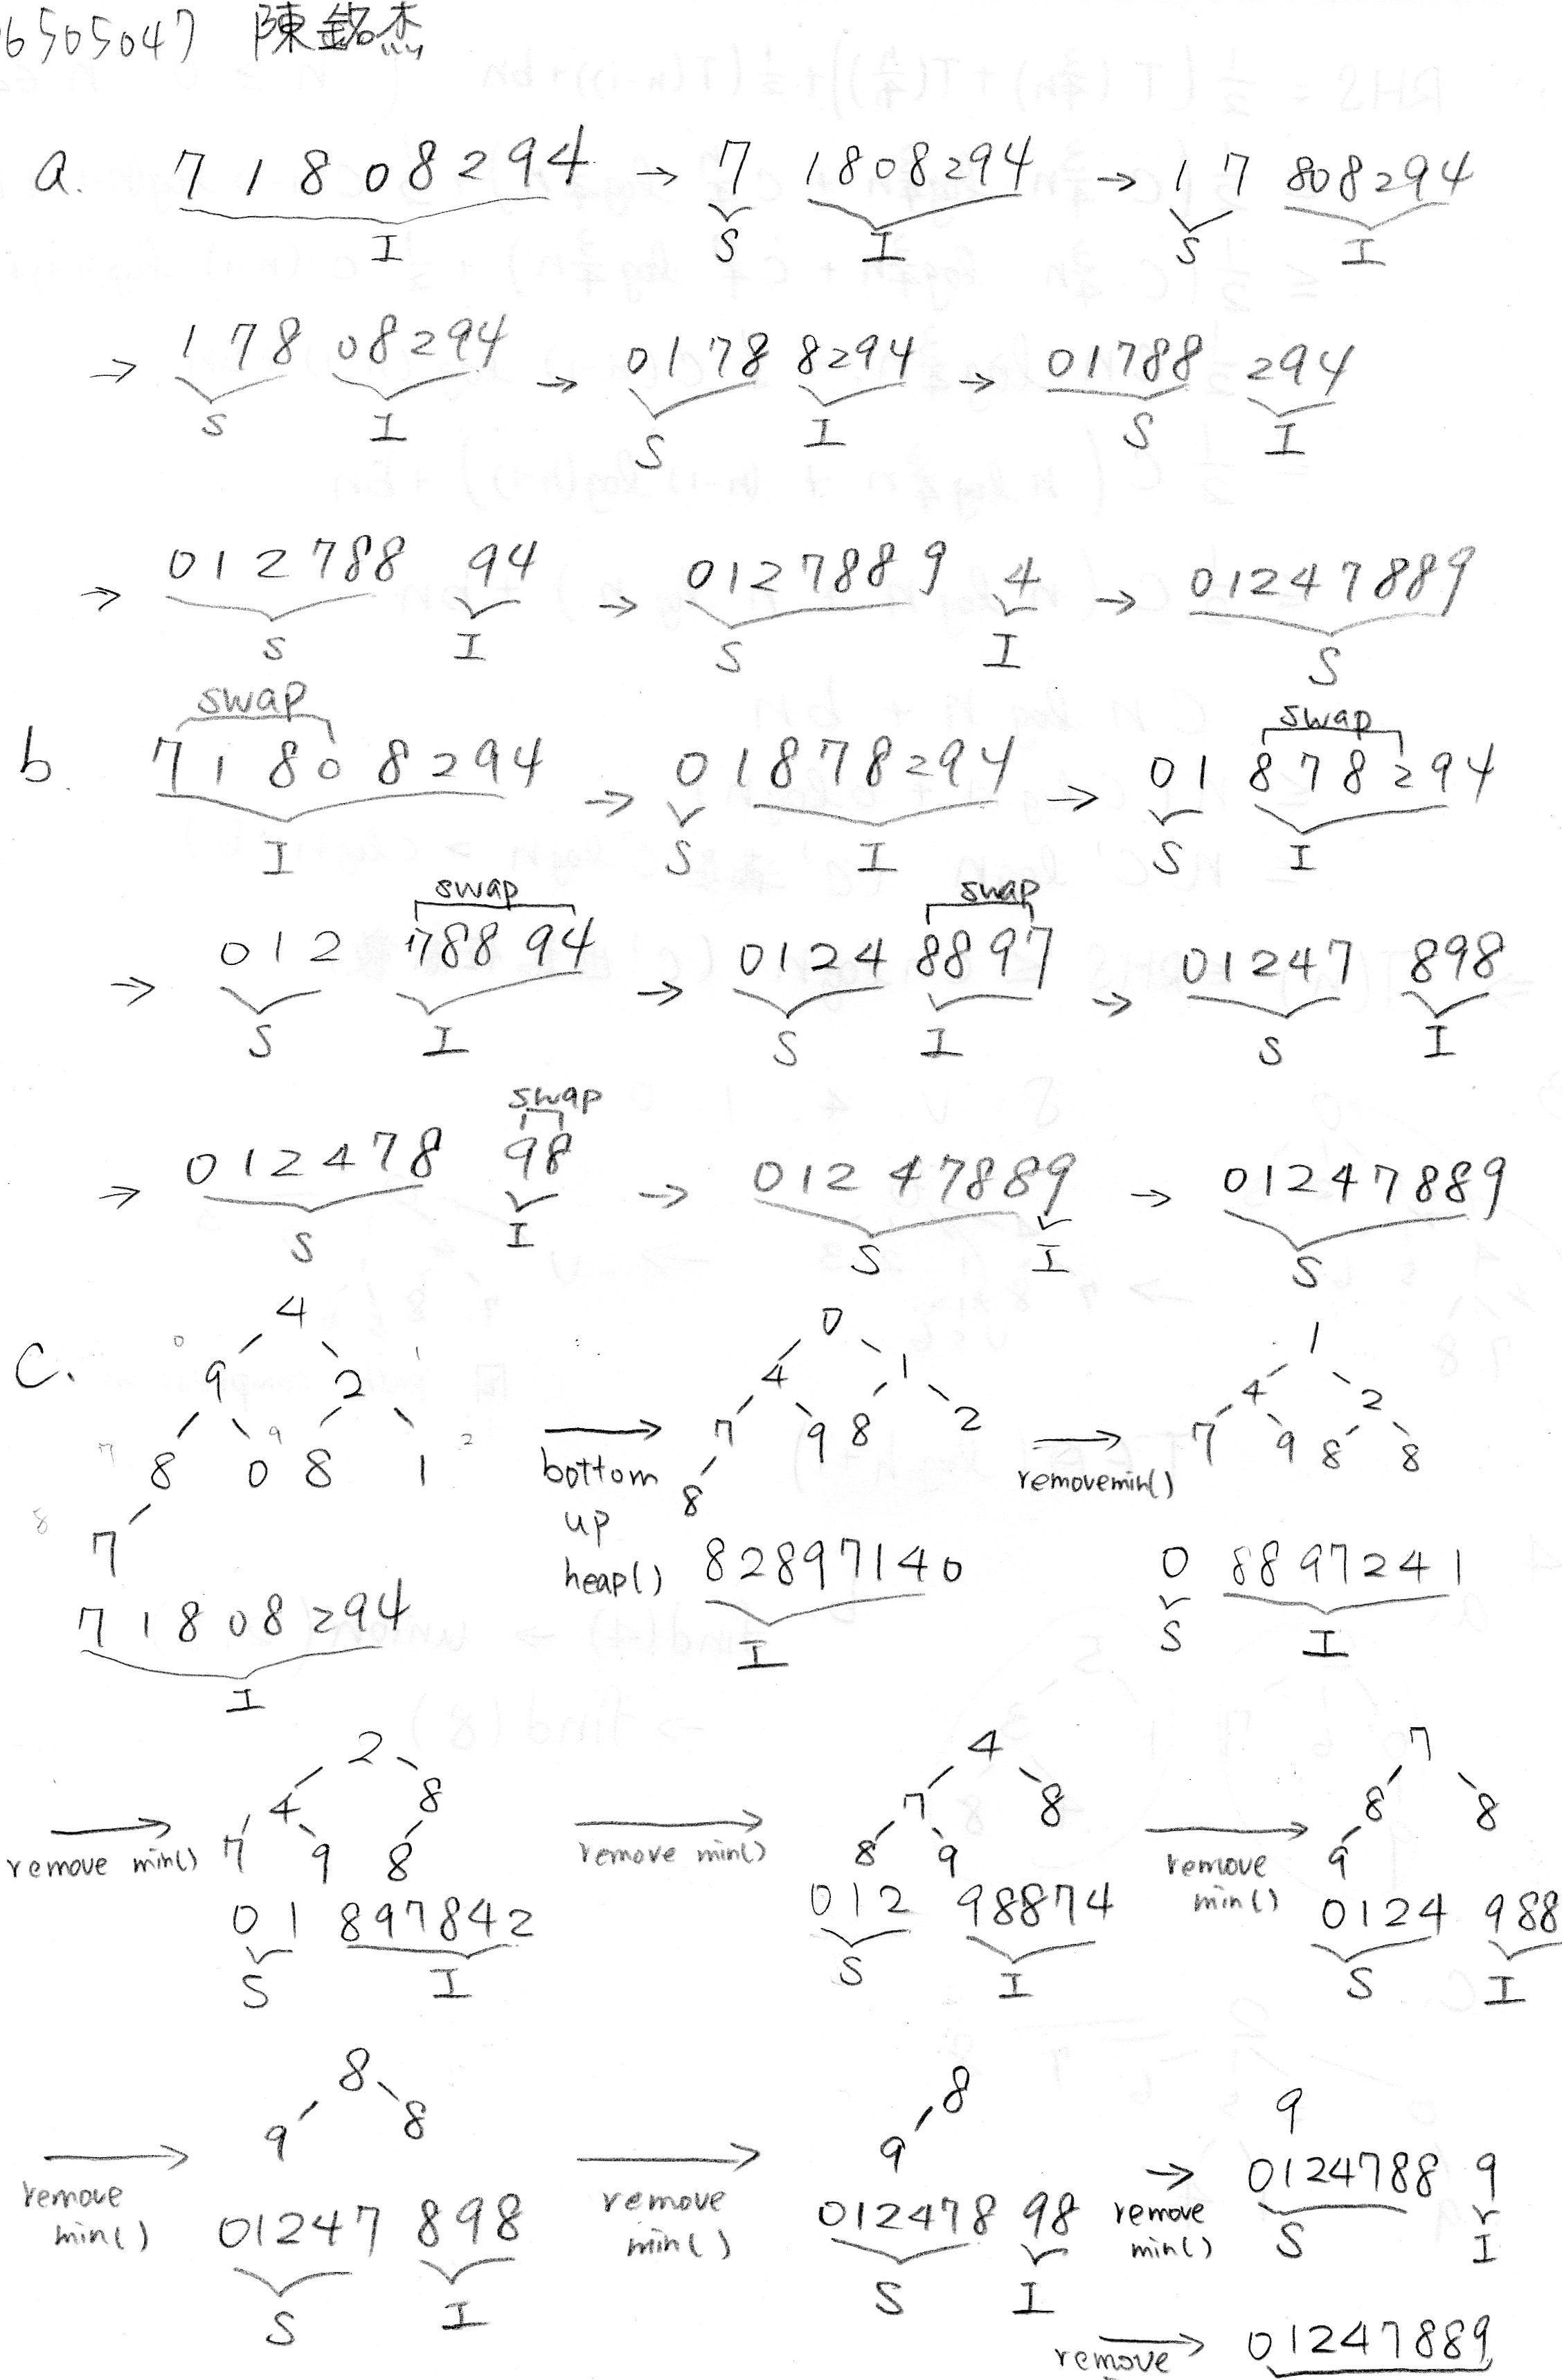 6505047 陳銘杰
a. 7 1 8 0 8 2 9 4 → 7 1808294 → 1 7 808294
I S I S I
→ 1 7 8 08294 → 0178 8294 → 01788 294
S I S I S I
→ 012788 94 → 0127889 4 → 01247889
S I S I S
swap swap
b. 7 1 8 0 8 2 9 4 → 0 1878294 → 01 878294
I S I S I
swap swap
→ 012 78894 → 0124 8897 → 01247 898
S I S I S I
swap
→ 012478 98 → 01247889 → 01247889
S I S I S
c.
4
9 2
8 0 8 1
7
7 1 8 0 8 2 9 4
I
→ bottom up heap()
0
4 1
7 9 8 2
8
82897140
I
→ removemin()
1
4 2
7 9 8 8
0 8897241
S I
→ remove min()
2
4 8
7 9 8
01 897842
S I
→ remove min()
4
7 8
8 9
012 98874
S I
→ remove min()
7
8 8
9
0124 988
S I
→ remove min()
8
9 8
01247 898
S I
→ remove min()
8
9
012478 98
S I
→ remove min()
9
0124788 9
S I
remove → 01247889